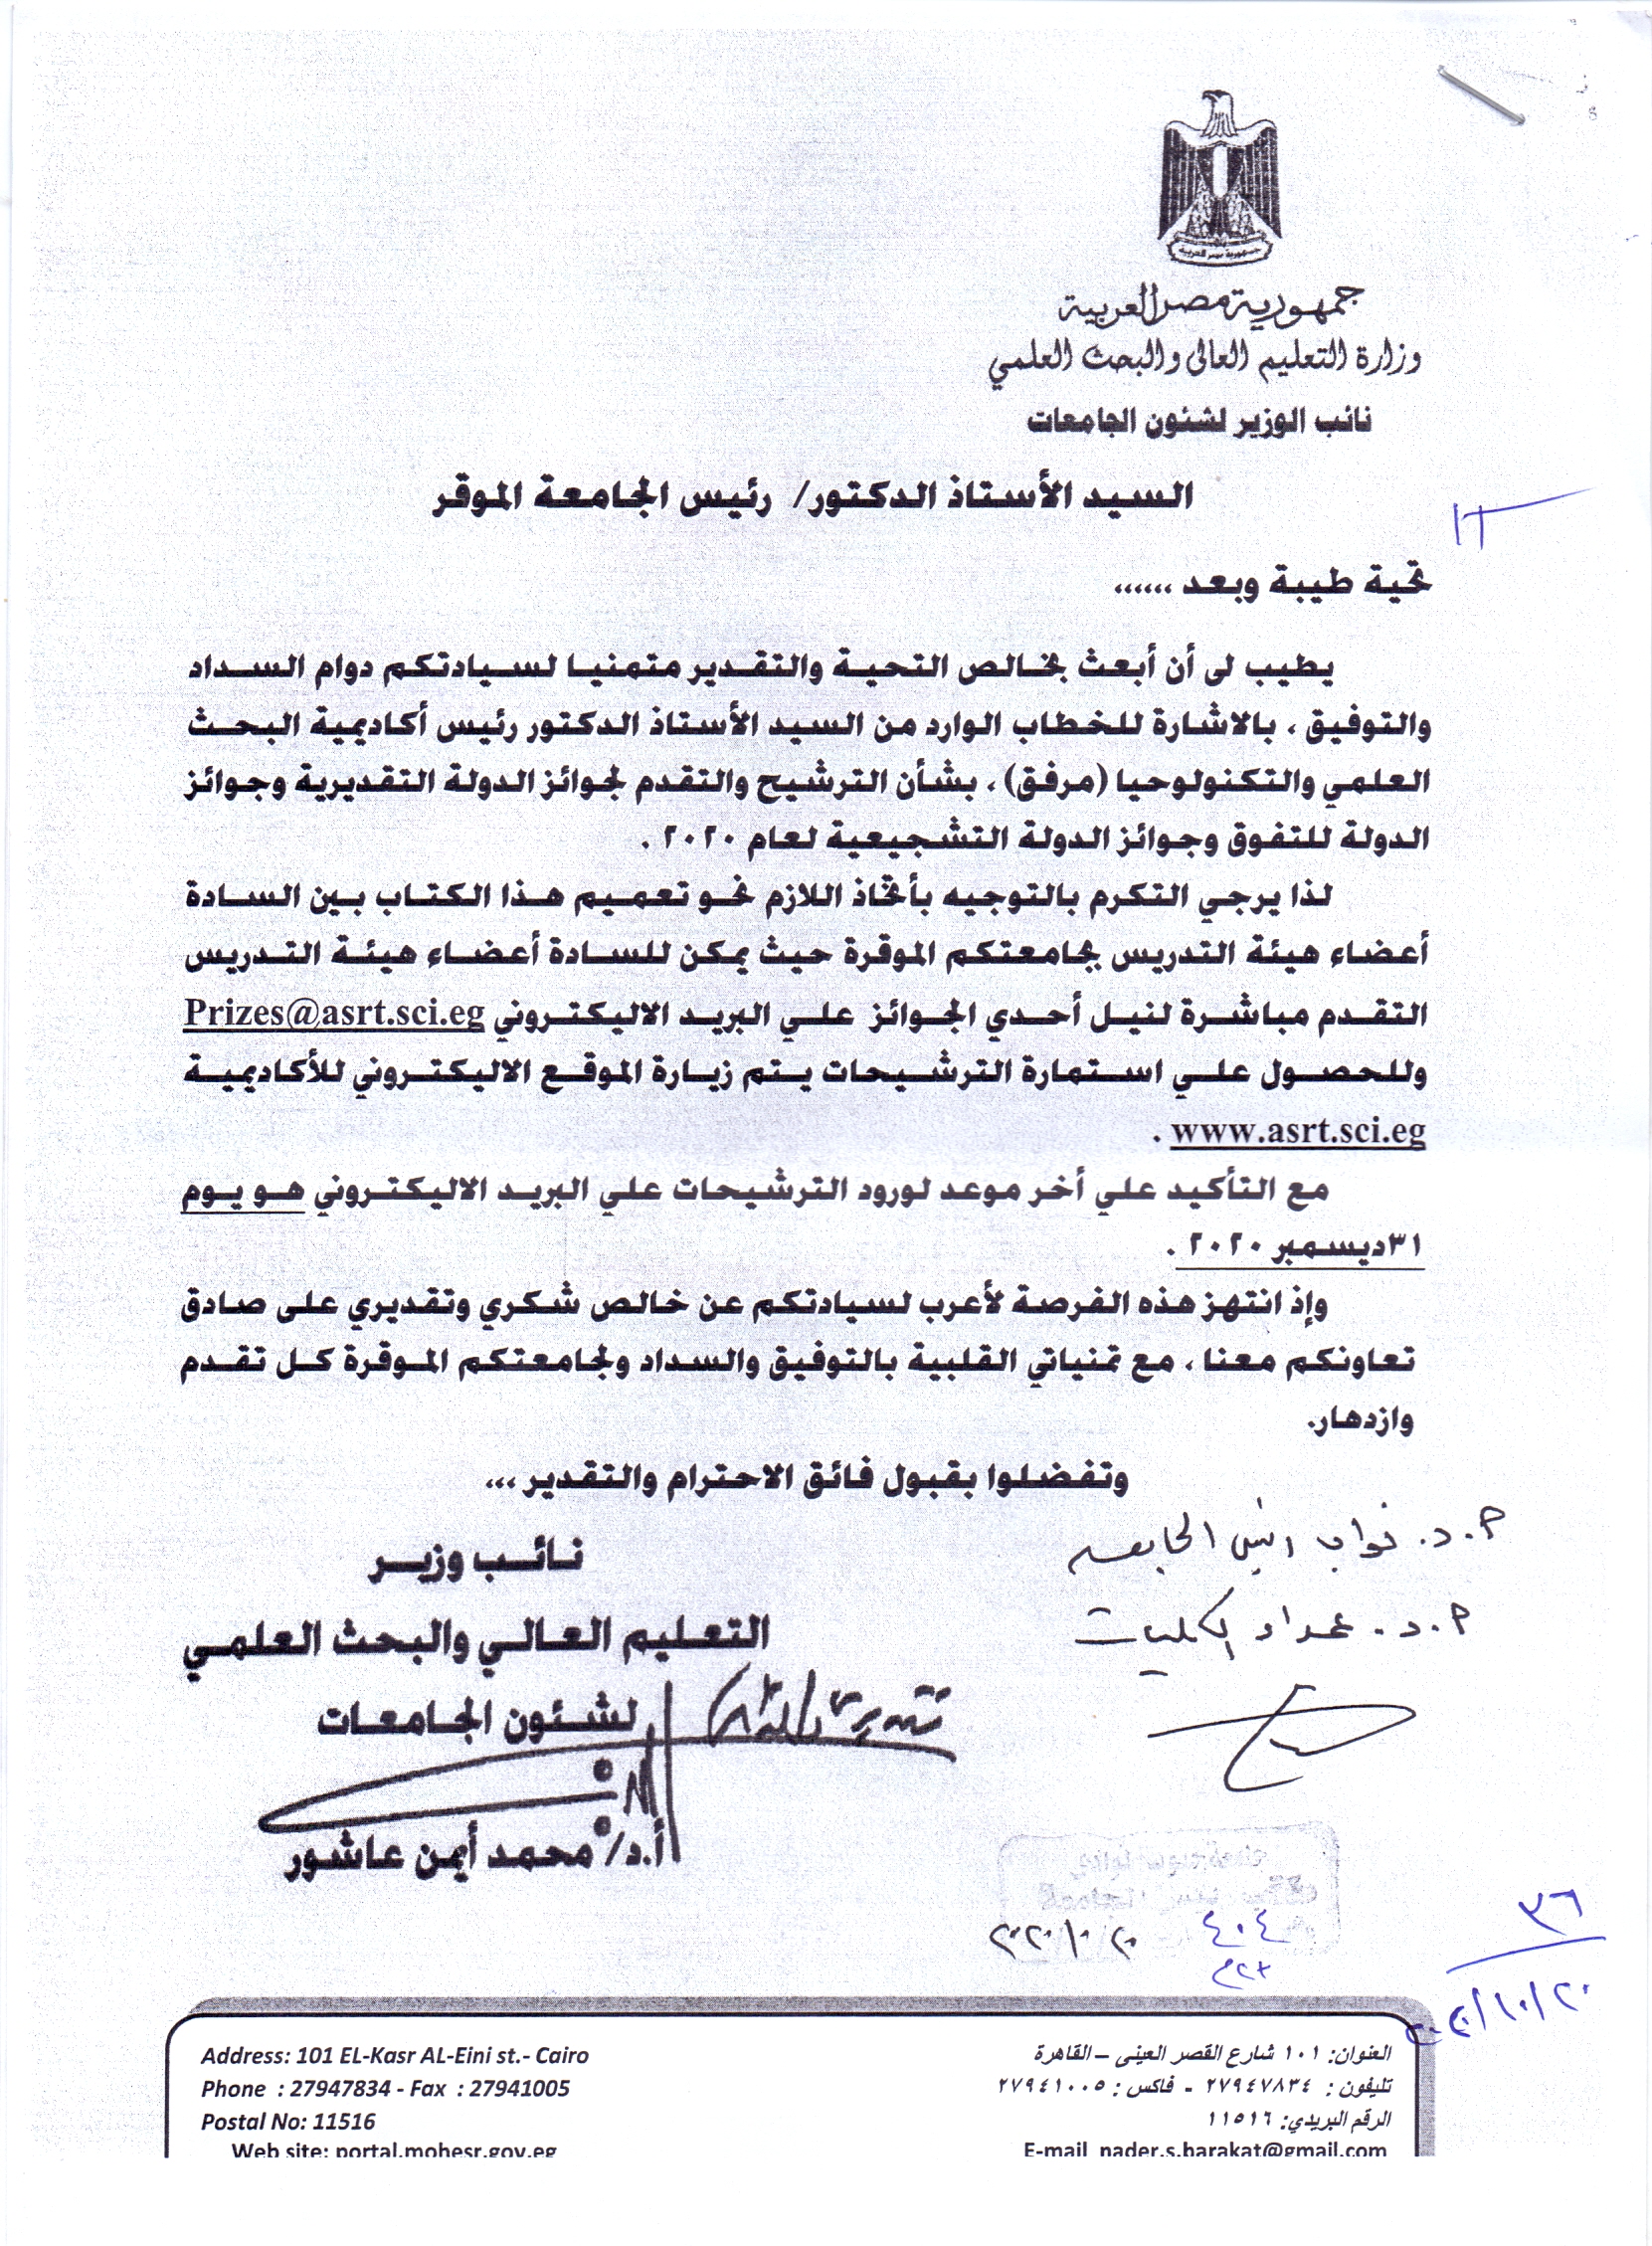 جمهورية مصر العربية
جمهورية مصر العربية
وزارة التعليم العالى والبحث العلمي
نائب الوزير لشئون الجامعات
السيد الأستاذ الدكتور/ رئيس الجامعة الموقر
تحية طيبة وبعد ......
يطيب لى أن أبعث بخالص التحية والتقدير متمنيا لسيادتكم دوام السداد
والتوفيق ، بالاشارة للخطاب الوارد من السيد الأستاذ الدكتور رئيس أكاديمية البحث
العلمي والتكنولوجيا (مرفق) ، بشأن الترشيح والتقدم لجوائز الدولة التقديرية وجوائز
الدولة للتفوق وجوائز الدولة التشجيعية لعام ٢٠٢٠ .
لذا يرجي التكرم بالتوجيه بأتخاذ اللازم نحو تعميم هذا الكتاب بين السادة
أعضاء هيئة التدريس بجامعتكم الموقرة حيث يمكن للسادة أعضاء هيئة التدريس
التقدم مباشرة لنيل أحدي الجوائز علي البريد الاليكتروني Prizes@asrt.sci.eg
وللحصول علي استمارة الترشيحات يتم زيارة الموقع الاليكتروني للأكاديمية
www.asrt.sci.eg .
مع التأكيد علي أخر موعد لورود الترشيحات علي البريد الاليكتروني هو يوم
٣١ديسمبر ٢٠٢٠ .
وإذ انتهز هذه الفرصة لأعرب لسيادتكم عن خالص شكري وتقديري على صادق
تعاونكم معنا ، مع تمنياتي القلبية بالتوفيق والسداد ولجامعتكم الموقرة كل تقدم
وازدهار.
وتفضلوا بقبول فائق الاحترام والتقدير ...
أ.د. نواب رئيس الجامعه
أ.د. عمداء الكليات
نائب وزير
التعليم العالي والبحث العلمي
لشئون الجامعات
أ.د/ محمد أيمن عاشور
٤٠٤
٢٠٢٠/١٠/٢٠
٣٦
٢٠٢٠/١٠/٢٠
العنوان: ١٠١ شارع القصر العينى – القاهرة
تليفون : ٢٧٩٤٧٨٣٤ - فاكس : ٢٧٩٤١٠٠٥
الرقم البريدي: ١١٥١٦
E-mail nader.s.barakat@gmail.com
Address: 101 EL-Kasr AL-Eini st.- Cairo
Phone : 27947834 - Fax : 27941005
Postal No: 11516
Web site: portal.mohesr.gov.eg